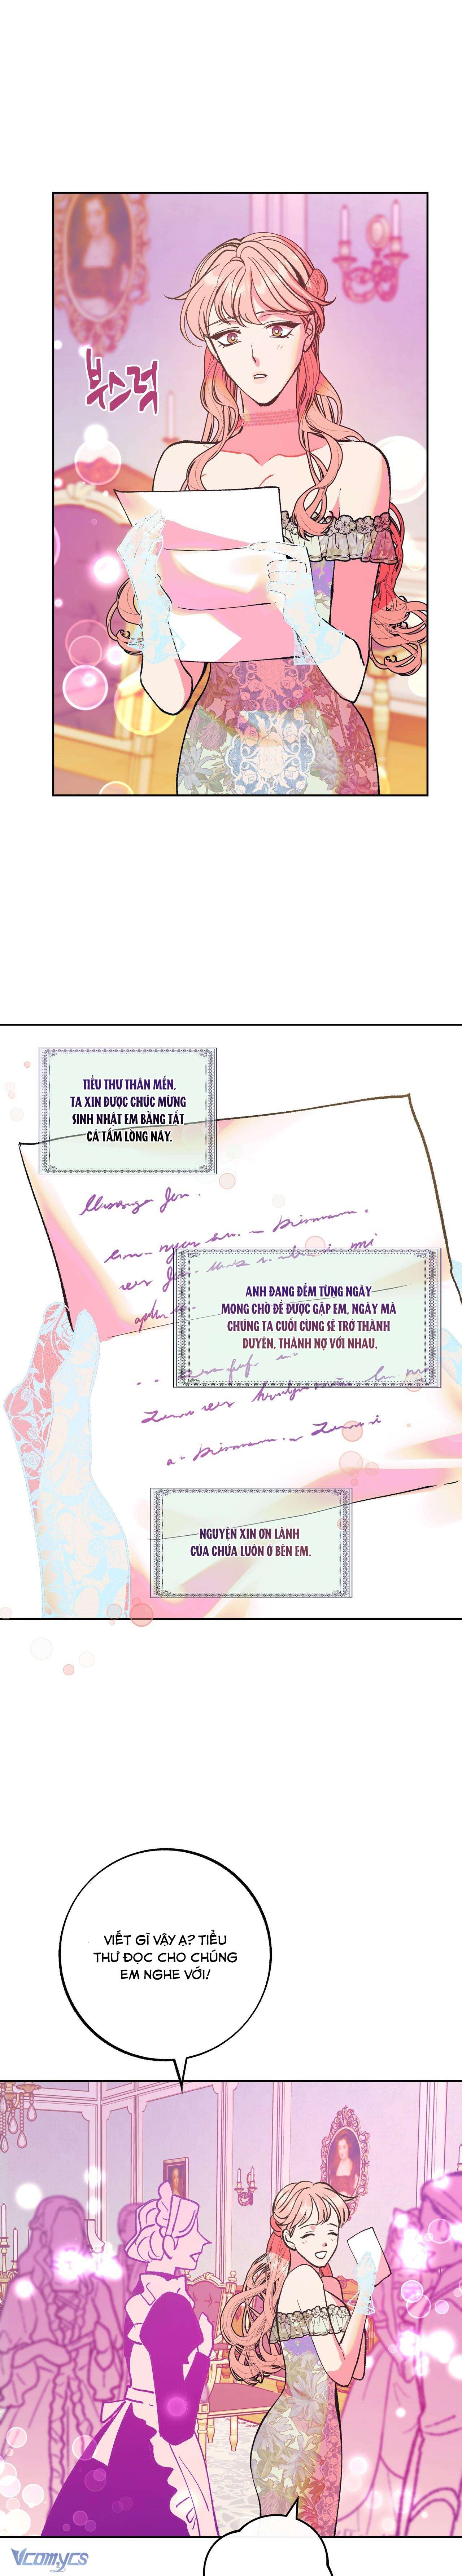 부스럭
TIỂU THƯ THÂN MẾN,
TA XIN ĐƯỢC CHÚC MỪNG
SINH NHẬT EM BẰNG TẤT
CẢ TẤM LÒNG NÀY.
ANH ĐANG ĐẾM TỪNG NGÀY
MONG CHỜ ĐỂ ĐƯỢC GẶP EM, NGÀY MÀ
CHÚNG TA CUỐI CÙNG SẼ TRỞ THÀNH
DUYÊN, THÀNH NỢ VỚI NHAU.
NGUYỆN XIN ƠN LÀNH
CỦA CHÚA LUÔN Ở BÊN EM.
VIẾT GÌ VẬY Ạ? TIỂU
THƯ ĐỌC CHO CHÚNG
EM NGHE VỚI!
Vcomycs